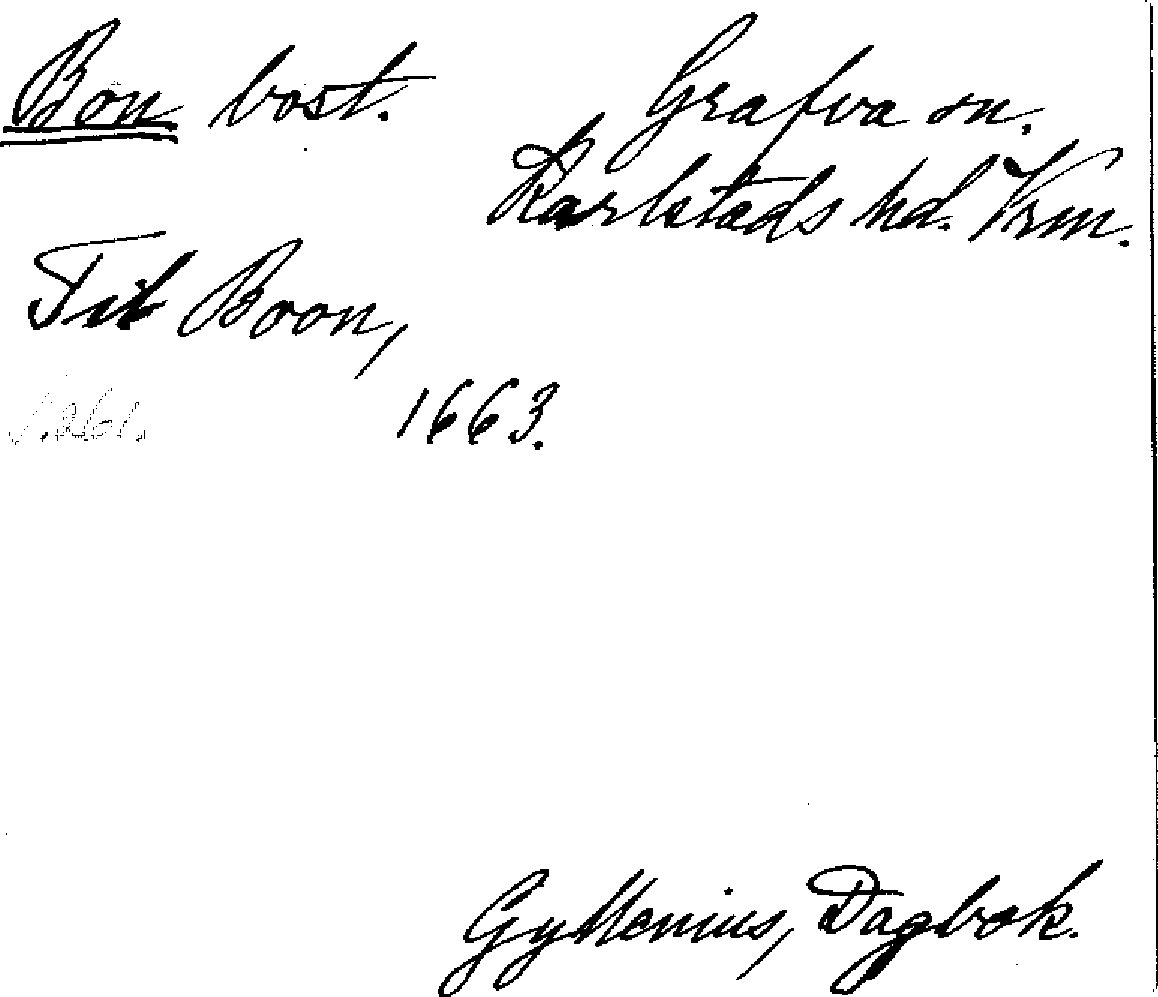 Bon bost. Grafva sn.
Karlstads hd. Vrm.
Til Boon,
s. 261. 1663.
Gyllenius, Dagbok.